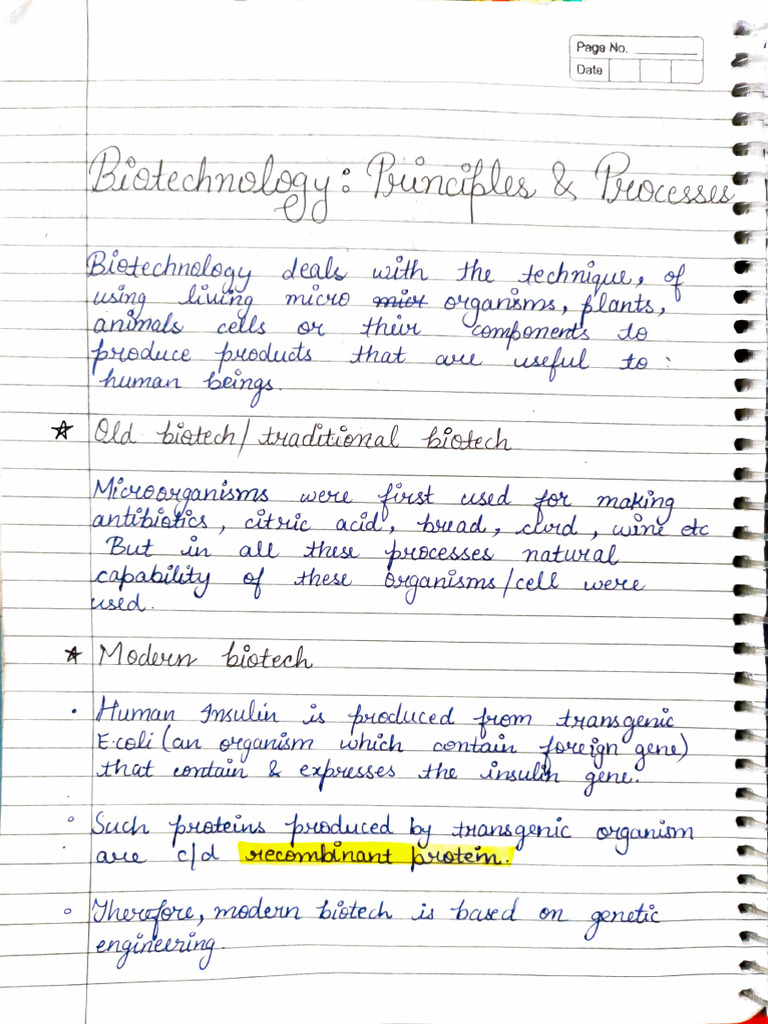 Page No.
Date
Biotechnology: Principles & Processes
Biotechnology deals with the technique, of
using living micro micr organisms, plants,
animals cells or their components to
produce products that are useful to:
human beings.
☆ Old biotech/traditional biotech
Microorganisms were first used for making
antibiotics, citric acid, bread, curd, wine etc
But in all these processes natural
capability of these organisms/cell were
used.
☆ Modern biotech
• Human Insulin is produced from transgenic
E.coli (an organism which contain foreign gene)
that contain & expresses the insulin gene.
° Such proteins produced by transgenic organism
are c/d recombinant protein.
° Therefore, modern biotech is based on genetic
engineering.